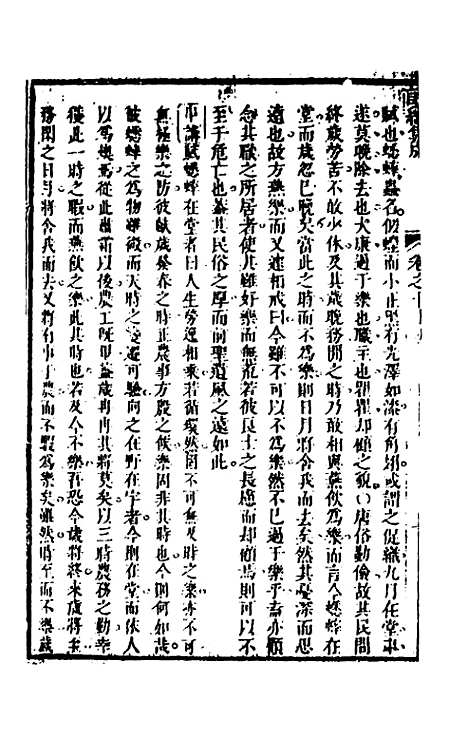 賦也蟋蟀蟲名似蝗而小正黑有光澤如漆有角翅或謂之促織九月在堂聿
遂莫晚除去也大康過于樂也職主也瞿瞿却顧之貌○唐俗勤儉故其民間
終歲勞苦不敢少休及其歲晚務閒之時乃敢相與燕飲爲樂而言今蟋蟀在
堂而歲忽已晚矣當此之時而不爲樂則日月將舍我而去矣然其憂深而思
遠也故方燕樂而又遽相戒曰今雖不可以不爲樂然不已過于樂乎盍亦顧
念其職之所居者使其雖好樂而無荒若彼良士之長慮而却顧焉則可以不
至于危亡也蓋其民俗之厚而前聖遺風之遠如此
講賦蟋蟀在堂者曰人生勞逸相乘若循環然固不可無及時之樂亦不可
無極樂之防彼獻歲發春之時正農事方殷之候樂固非其時也今則何如哉
彼蟋蟀之爲物雖微而天時之變遷可驗向之在野在宇者今則在堂而依人
以爲燠焉從此肅霜以後農工既畢蓋歲聿冉其將莫矣以三時農務之勤幸
獲此一時之暇而燕飲之樂此其時也若及今不樂吾恐今歲將終來歲得至
務閒之日月將舍我而去又將有事于農而不暇爲樂矣雖然時至而不樂歲